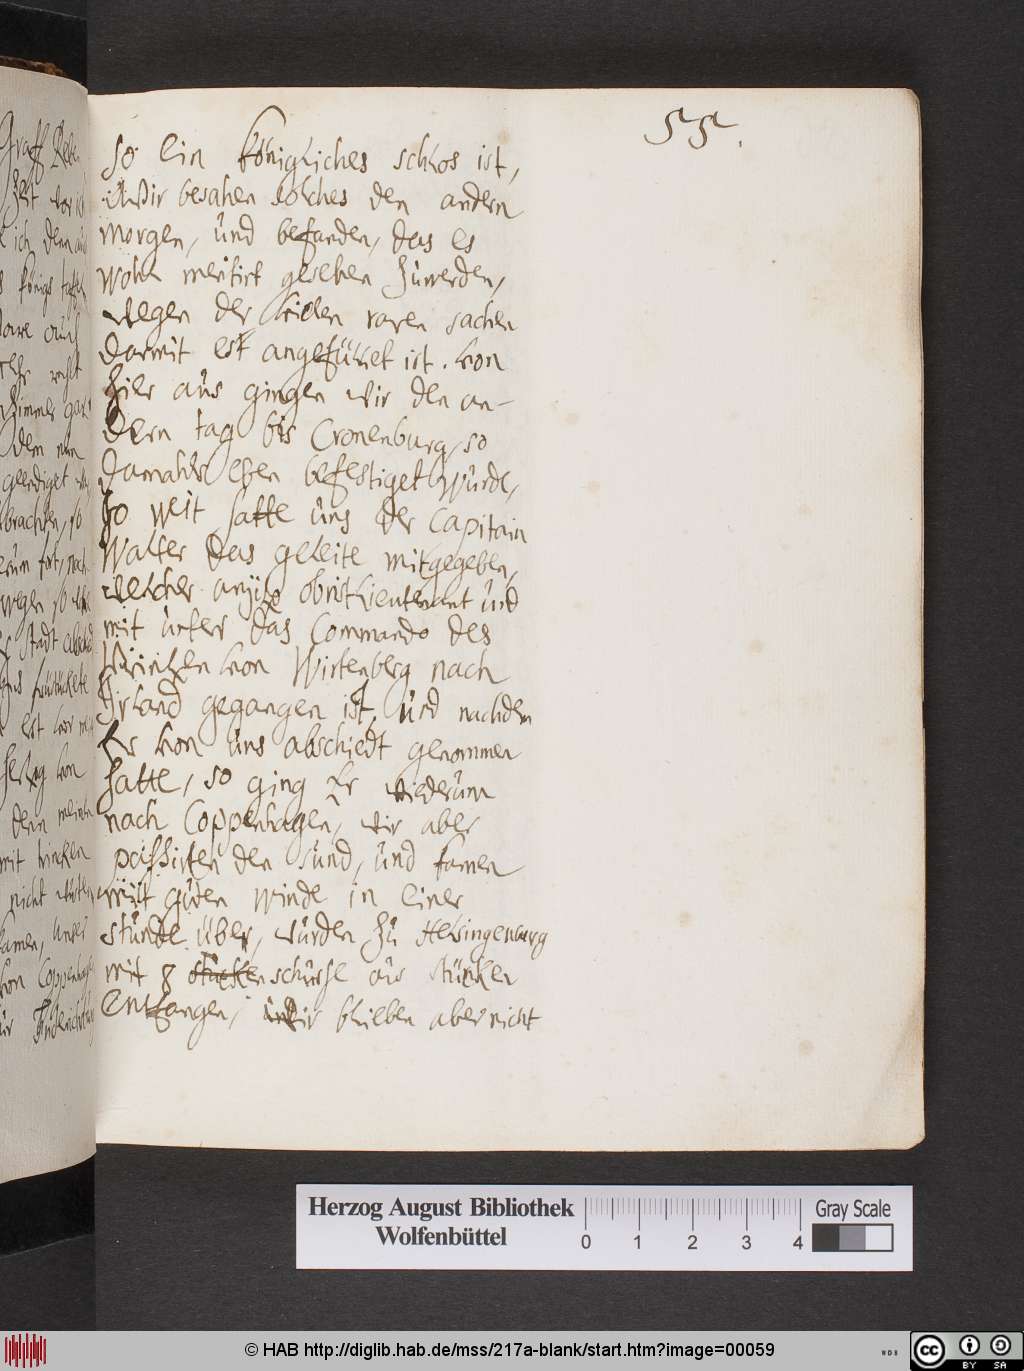 55.
so ein königliches schlos ist,
Wir besahen solches den andern
morgen, und befanden, das es
wohl meritirt gesehen zuwerden,
wegen der vielen raren sachen
darmit est angefüllet ist. von
hier aus gingen wir den an-
dern tag bis Cronenburg, so
damahls eben befestiget wurde,
so weit hatte uns der Capitain
Walter das geleite mitgegeben,
welcher anjtzo obrist Lieutenant und
mit unter das Commando des
Printzen von Wirtenberg nach
Irland gegangen ist, und nachdem
Er von uns abschiedt genommen
hatte, so ging Er wiederum
nach Coppenhagen, wir aber
passirten den Sund, und kamen
mit guten winde in einer
stunde über, wurden zu Helsingenburg
mit 8 stücken schüsse aus stücken
Entfangen, wir blieben aber nicht
Graff
ich denn
Königs
auch
recht
Zimmer
dem
geendiget
brachten, so
wegen so
Stadt
früstückete
von
denn meinte
mit trincken
nicht
kamen, unser
von Coppenhagen
Herzog August Bibliothek
Wolfenbüttel
0 1 2 3 4
Gray Scale
© HAB http://diglib.hab.de/mss/217a-blank/start.htm?image=00059
WDB
cc BY SA